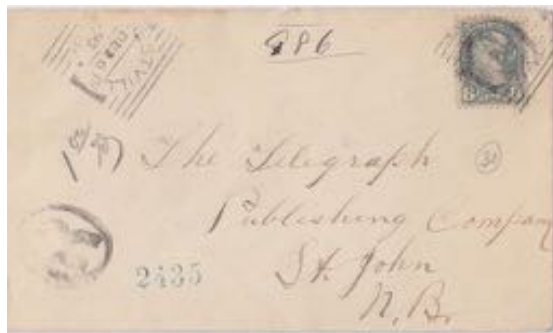 486
The Telegraph
Publishing Company
St. John
N.B.
31
2435